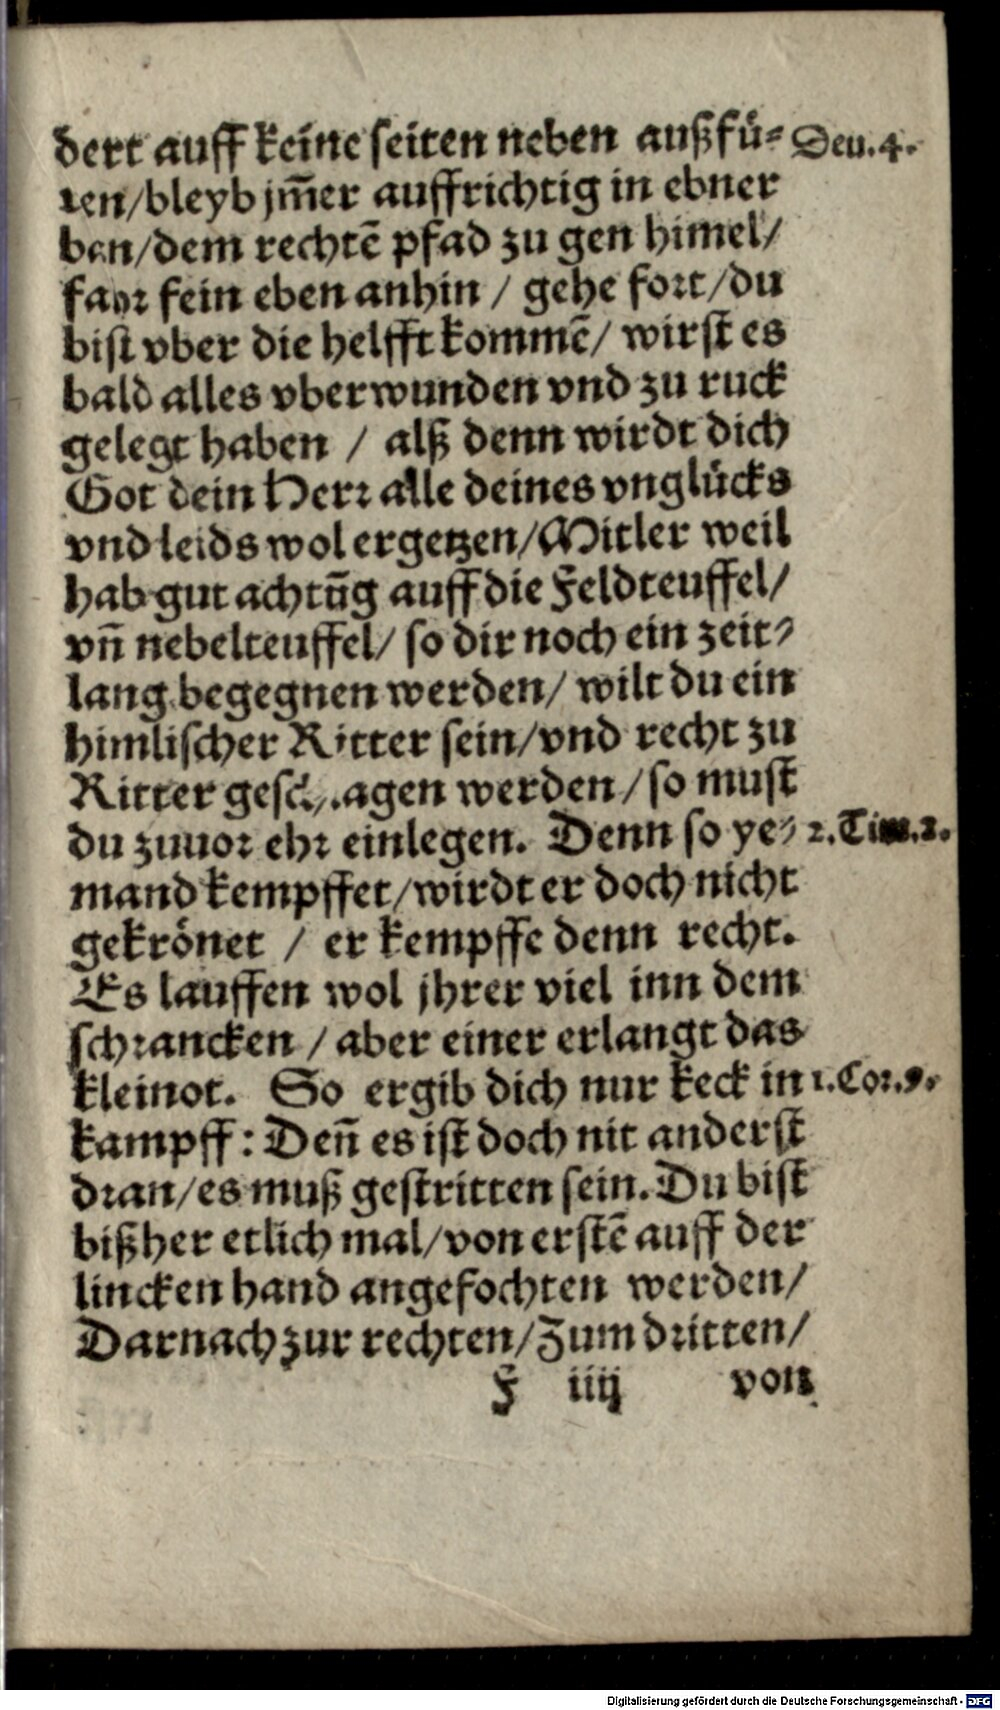 dert auff keine seiten neben außfü- Deu.4.
ren/bleyb jm̄er auffrichtig in ebner
ban/dem rechtē pfad zu gen himel/
fahr fein eben anhin / gehe fort/du
bist vber die helfft kommē/ wirst es
bald alles vberwunden vnd zu ruck
gelegt haben / alß denn wirdt dich
Got dein Herr alle deines vnglücks
vnd leids wol ergetzen/Mitler weil
hab gut achtūg auff die Feldteuffel/
vn̄ nebelteuffel/ so dir noch ein zeit-
lang begegnen werden/ wilt du ein
himlischer Ritter sein/vnd recht zu
Ritter geschlagen werden/so must
du zuuor ehr einlegen. Denn so ye- 2.Tim.2.
mand kempffet/wirdt er doch nicht
gekrönet / er kempffe denn recht.
Es lauffen wol jhrer viel inn dem
schrancken / aber einer erlangt das
kleinot. So ergib dich nur keck in 1.Cor.9.
kampff: Den̄ es ist doch nit anderst
dran/es muß gestritten sein. Du bist
bißher etlich mal/von erstē auff der
lincken hand angefochten werden/
Darnach zur rechten/Zum dritten/
F iiij von
Digitalisierung gefördert durch die Deutsche Forschungsgemeinschaft - DFG